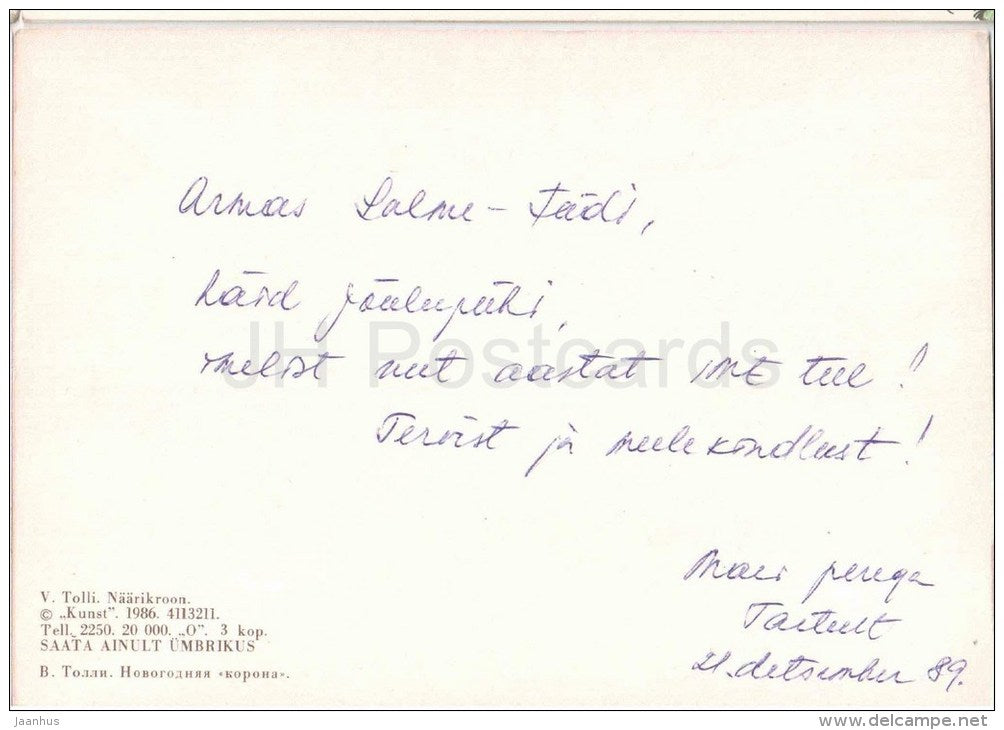 Armas Salme-tädi,
häid jõulupühi,
imelist uut aastat ME teel!
Tervist ja meelekindlust!
Mari perega
Tartust
21. detsember 89.
V. Tolli. Näärikroon.
© „Kunst". 1986. 4113211.
Tell. 2250. 20 000. „O". 3 kop.
SAATA AINULT ÜMBRIKUS
В. Толли. Новогодняя «корона».
JH Postcards
jaanhus
www.delcampe.net